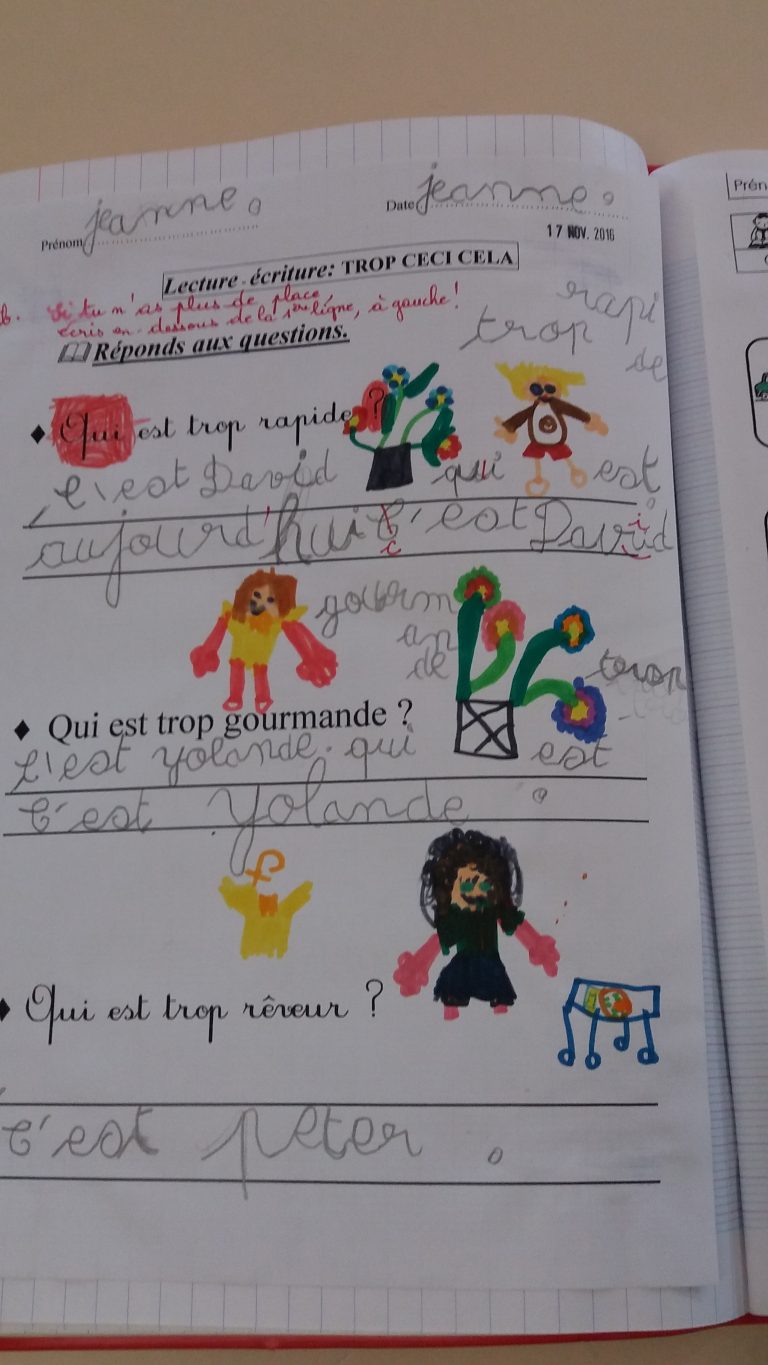 Prénom jeanne.
Date jeanne.
17 NOV. 2016
Lecture-écriture: TROP CECI CELA
Si tu n'as plus de place,
écris en-dessous de la 1ère ligne, à gauche!
Réponds aux questions.
trop rapi
de
Qui est trop rapide ?
c'est David qui est
aujourd'hui c'est David
gourm
an
de
trop
Qui est trop gourmande ?
c'est yolande. qui est
c'est yolande.
Qui est trop rêveur ?
c'est peter.
Prén